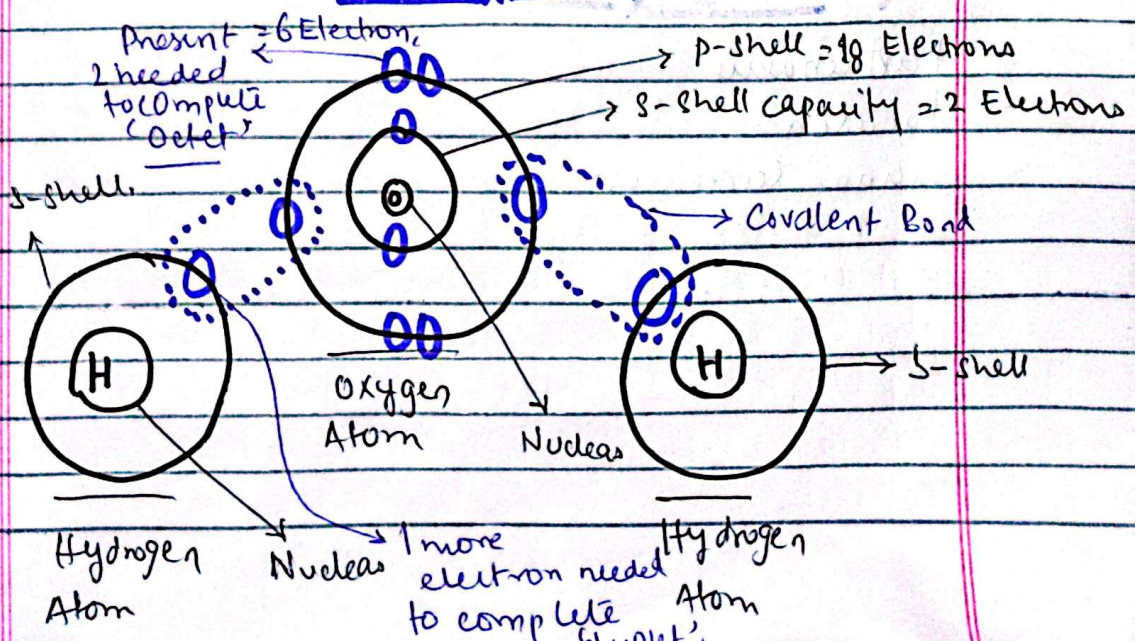 Present = 6 Electron,
2 needed
to compute
'Octet'
p-shell = 18 Electrons
s-shell capacity = 2 Electrons
s-shell
Covalent Bond
O
H
H
s-shell
Oxygen
Atom
Nucleas
Hydrogen
Atom
Nucleas
1 more
electron needed
to complete
Hydrogen
Atom